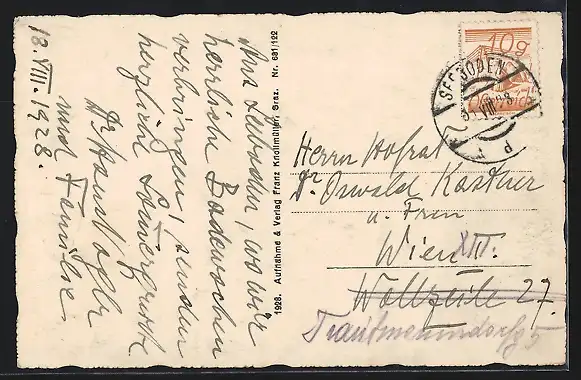 Aus Seeboden, wo wir
herrliche Badewochen
verbringen, senden
herzliche Sommergrüße
Dr
und Familie.
18. VIII. 1928.
1928. Aufnahme & Verlag Franz Knollmüller, Graz. Nr. 681/122
10g
SEEBODEN
VIII 28
Herrn Hofrat
Dr Oswald Kastner
u. Frau
Wien XIII.
Wollzeile 27.
Trautmannsdorfg 5